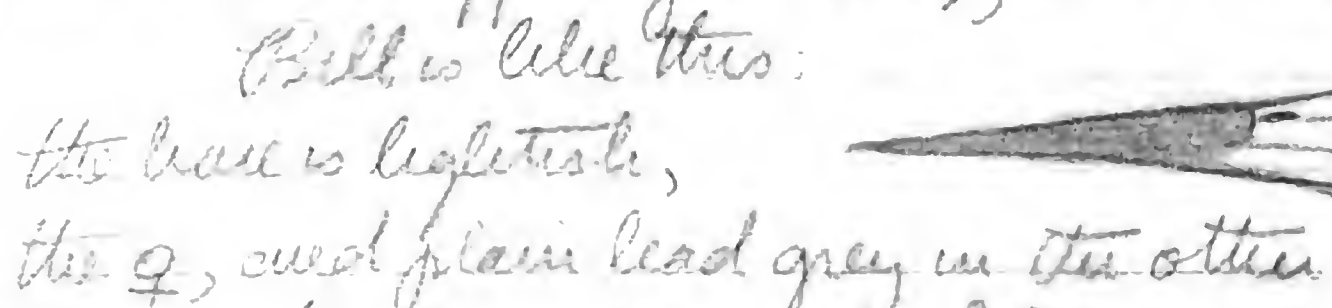 Bill is like this:
the base is lightish,
the ♀, and plain lead grey in the other